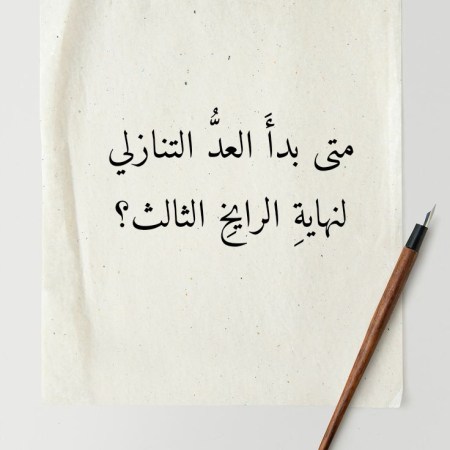 متى بدأَ العدُّ التنازلي
لنهايةِ الرايخِ الثالث؟